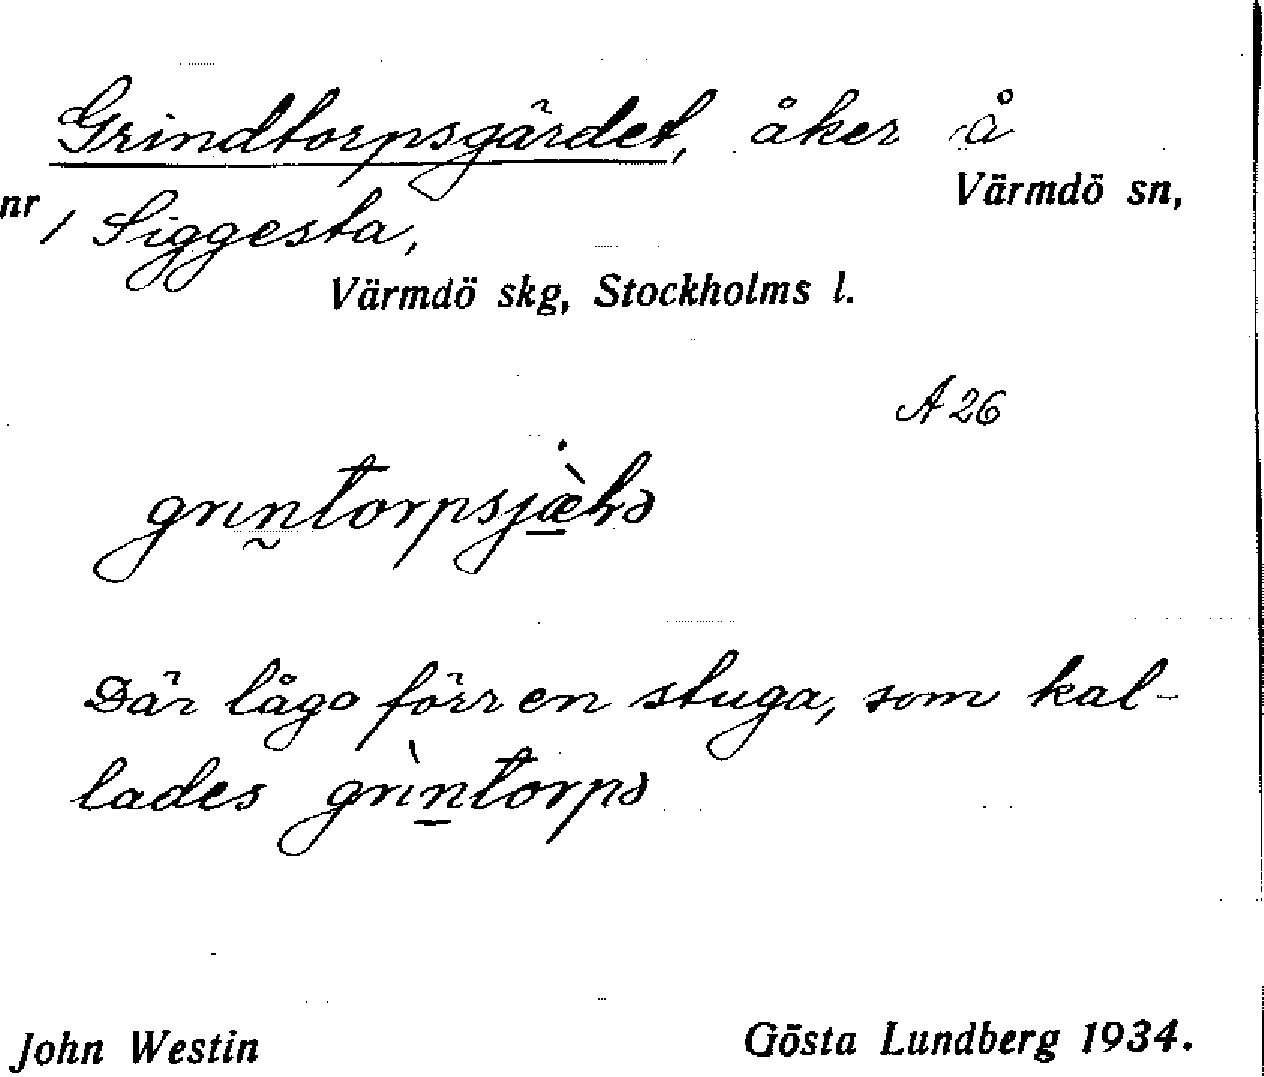 Grindtorpsgärdet, åker å
Värmdö sn,
nr 1 Siggesta,
Värmdö skg, Stockholms l.
A 26
Där lågo förr en stuga, som kal-
lades grìntorpə
John Westin
Gösta Lundberg 1934.